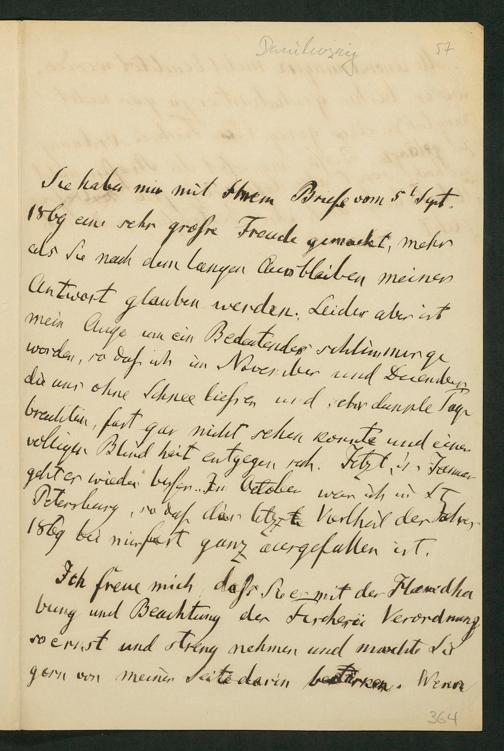 Danilewsky
57
Sie haben mir mit Ihrem Briefe vom 5t Sept.
1869 eine sehr große Freude gemacht, mehr
als Sie nach dem langen Ausbleiben meiner
Antwort glauben werden. Leider aber ist
mein Auge um ein Bedeutendes schlimmer ge
worden, so daß ich im November und December
die uns ohne Schnee ließen und sehr dunkle Tage
brachten, fast gar nicht sehen konnte und einer
völligen Blindheit entgegen sah. Jetzt, im Januar
geht es wieder besser. Im October war ich in St
Petersburg, so daß das letzte Viertheil des Jahres
1869 bei mir fast ganz ausgefallen ist.
Ich freue mich, daß Sie es mit der Handha
bung und Beachtung der Fischerei Verordnung
so ernst und streng nehmen und möchte Sie
gern von meiner Seite darin bestärken. Wenn
364